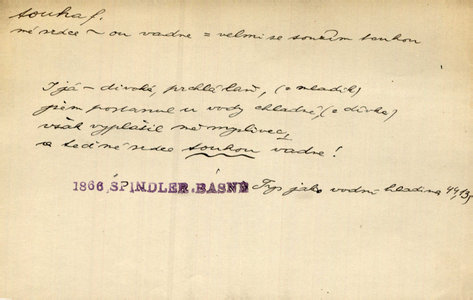 touha f.
mé srdce ~ ou vadne = velmi se soužím touhou
I já – divoká, prchlá laň, (o mladík)
jsem postanul u vody chladné, (o dívka)
však vyplašil mě myslivec,
a teď mé srdce touhou vadne!
1866 SPINDLER. BÁSNĚ Typ jako vodní hladina 44, 13,